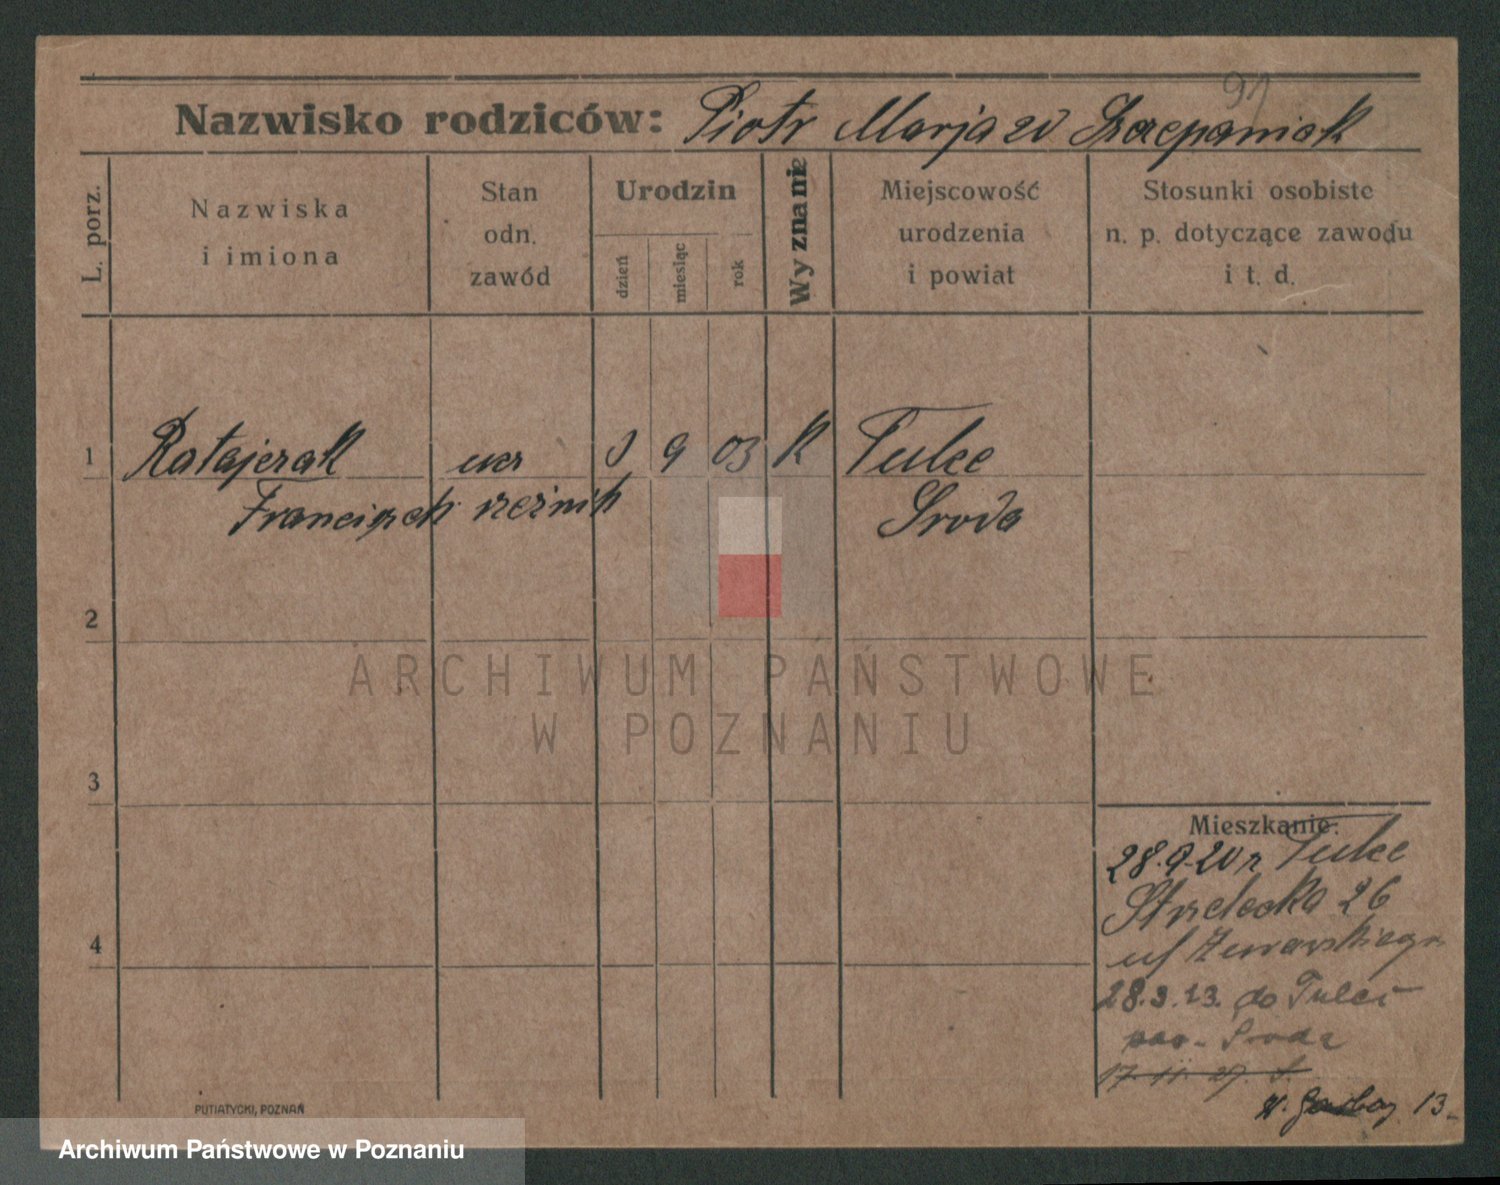 91
Nazwisko rodziców: Piotr Marja zd Szczepaniak
L. porz.
Nazwiska
i imiona
Stan
odn.
zawód
Urodzin
dzień
miesiąc
rok
Wyznanie
Miejscowość
urodzenia
i powiat
Stosunki osobiste
n. p. dotyczące zawodu
i t. d.
1 Ratajczak 9 03 k Tulce
Franciszek rzeźnik Środa
2
3
4
ARCHIWUM PAŃSTWOWE
W POZNANIU
Mieszkanie:
28.9.20 r Tulce
Strzelecka 26
28.3.23. do Tulec
pow. Środa
17.11.27.
W. Garbary 13
PUTIATYCKI, POZNAŃ
Archiwum Państwowe w Poznaniu